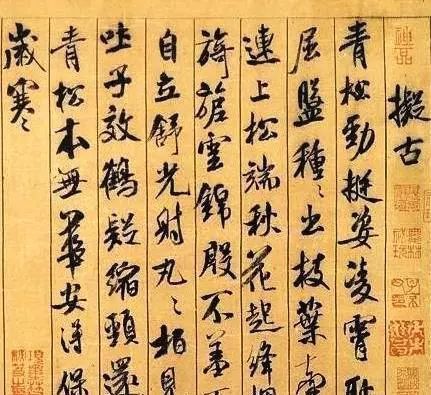 擬古
青松勁挺姿凌霄恥
屈盤種〻出枝葉牽
連上松端秋花起絳
旖旎雲錦殷不羞
自立舒光射丸〻柏見
吐子效鶴疑縮頸還
青松本無華安得保
歲寒